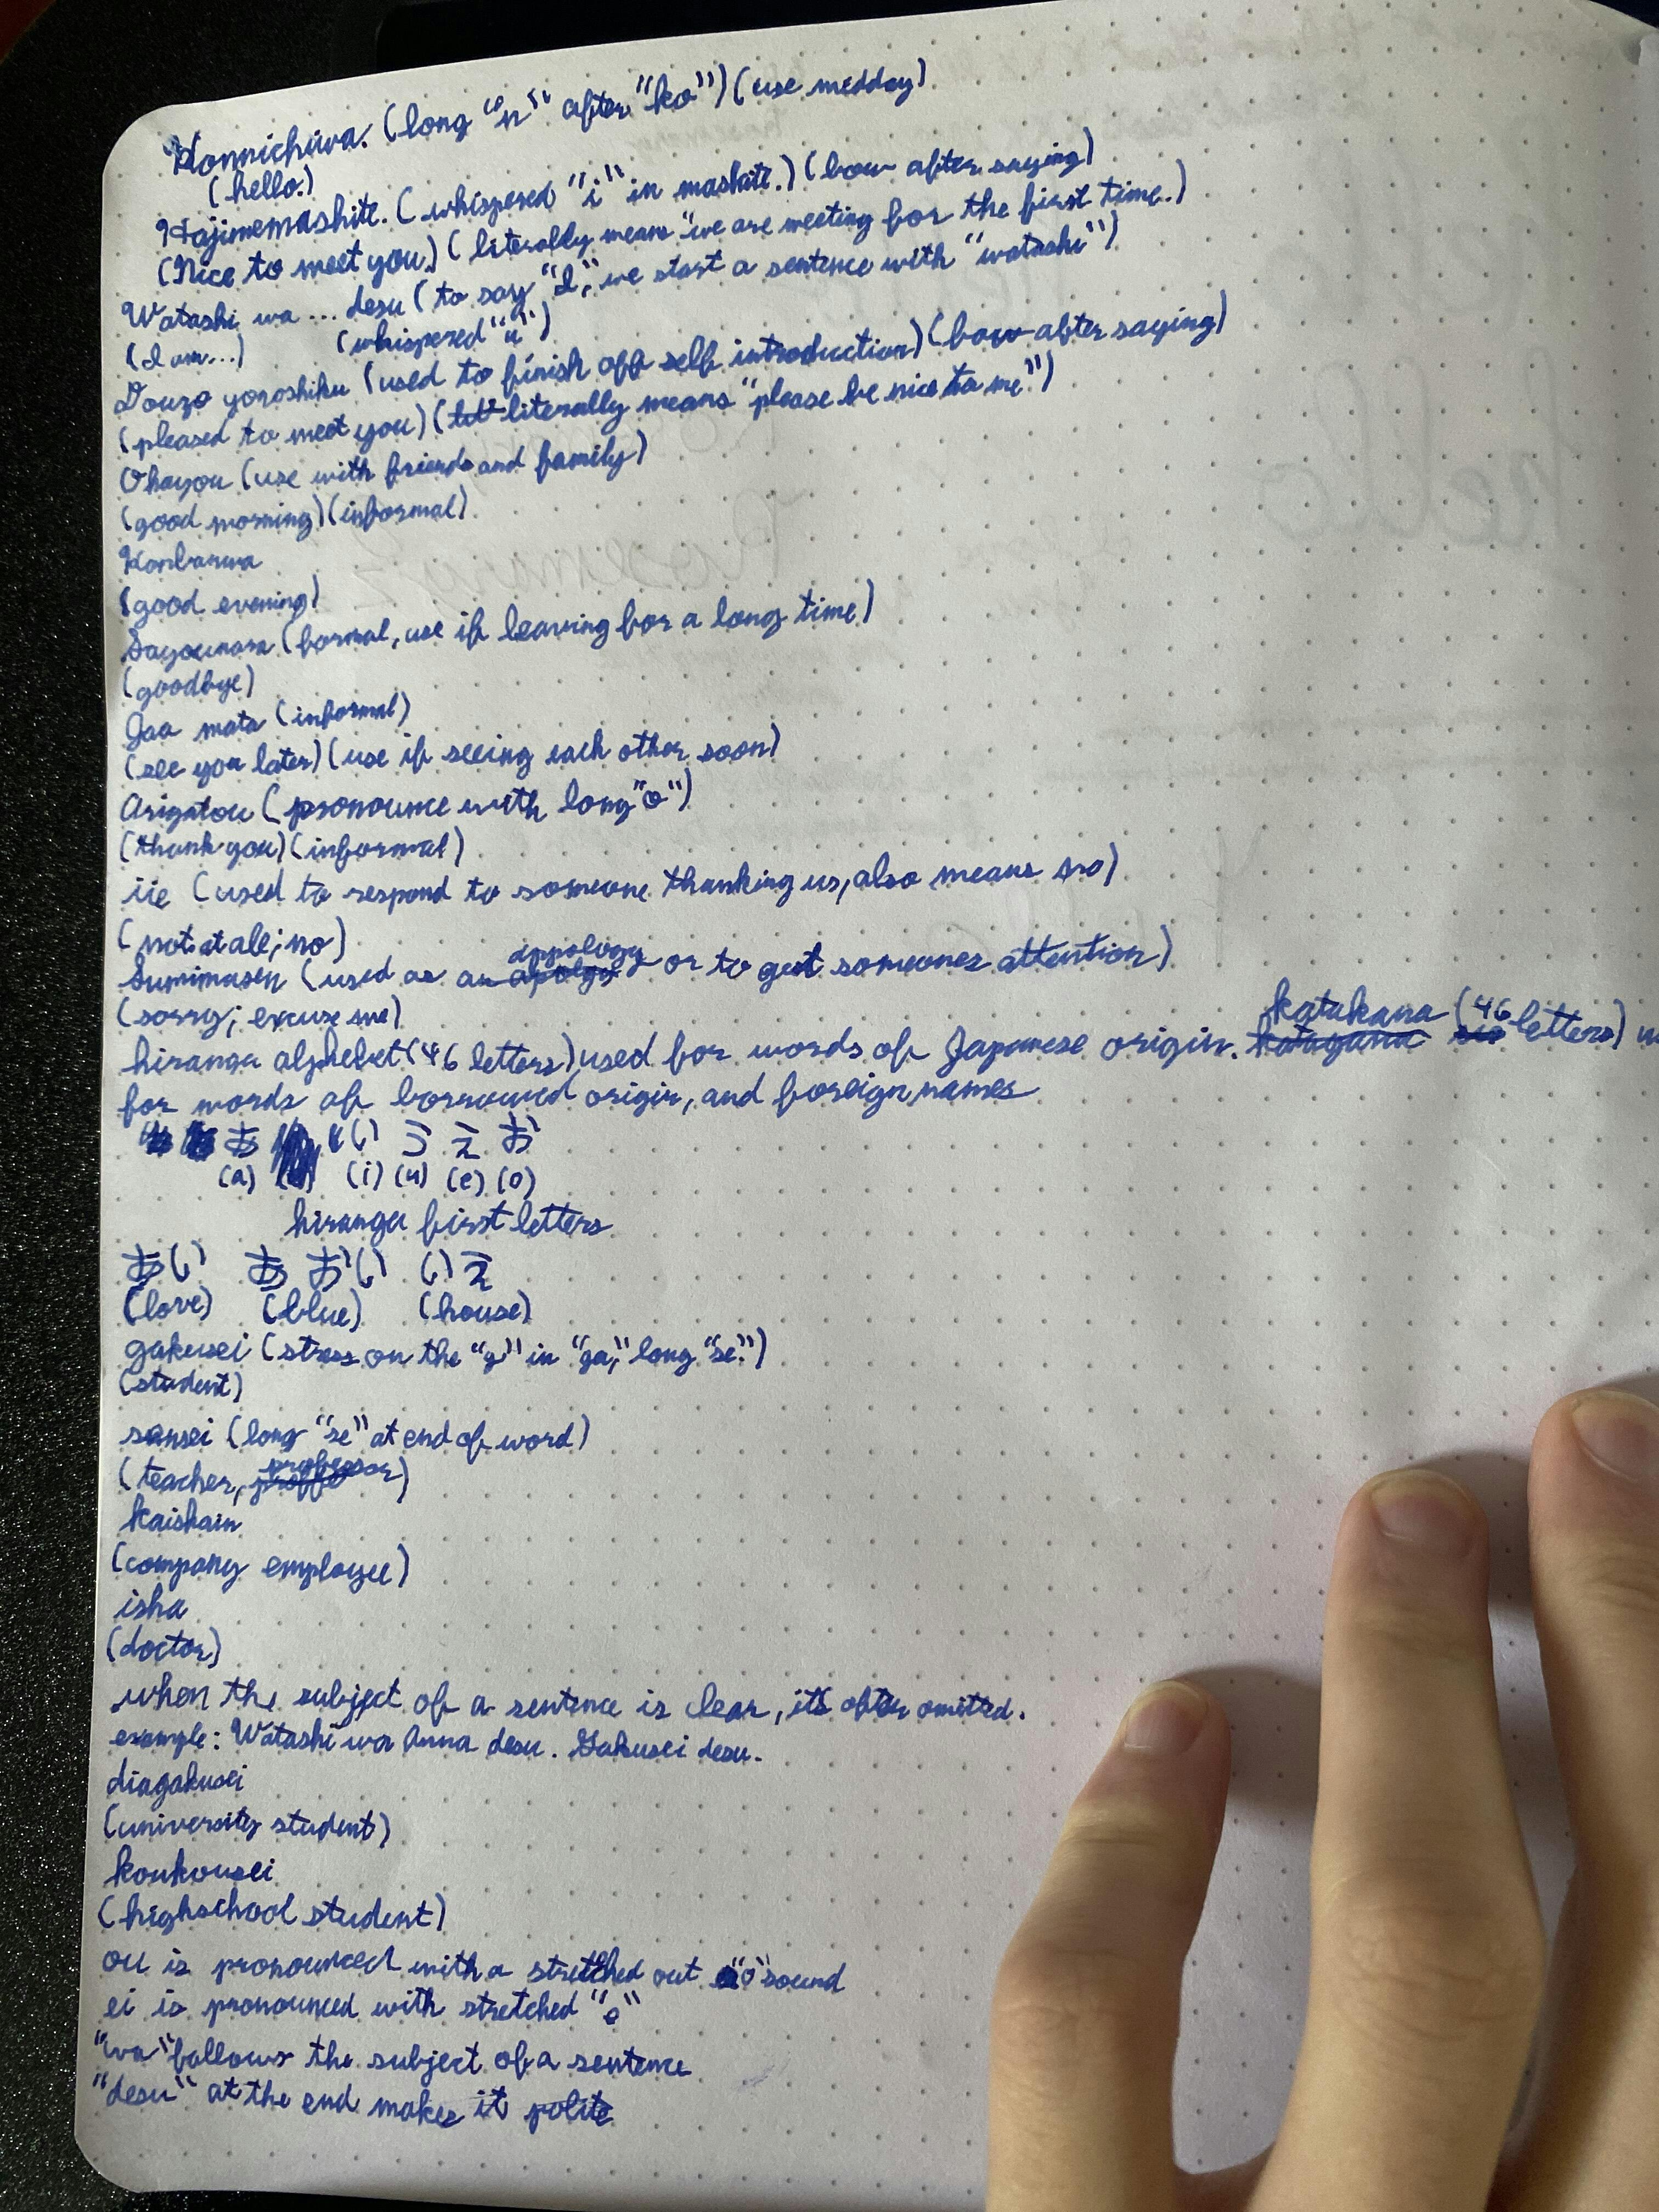 Konnichiwa. (long "n" after "ko") (use midday)
(hello.)
Hajimemashite. (whispered "i" in mashite.) (bow after saying)
(Nice to meet you.) (literally means "we are meeting for the first time.)
Watashi wa ... desu (to say "I," we start a sentence with "watashi")
(I am...) (whispered "u")
Douzo yoroshiku (used to finish off self introduction) (bow after saying)
(pleased to meet you) (literally means "please be nice to me")
Ohayou (use with friends and family)
(good morning) (informal)
Konbanwa
(good evening)
Sayounara (formal, use if leaving for a long time)
(goodbye)
Jaa mata (informal)
(see you later) (use if seeing each other soon)
Arigatou (pronounce with long "o")
(thank you) (informal)
iie (used to respond to someone thanking us, also means no)
(not at all; no)
Sumimasen (used as an appology or to get someones attention)
(sorry; excuse me)
hiranga alphebet (46 letters) used for words of Japanese origin. katakana (46 letters)
for words of borrowed origin, and foreign names
あ い う え お
(a) (i) (u) (e) (o)
hiranga first letters
あい あおい いえ
(love) (blue) (house)
gakusei (stress on the "g" in "ga," long "se.")
(student)
sensei (long "se" at end of word)
(teacher, professor)
kaishain
(company employee)
isha
(doctor)
when the subject of a sentence is clear, its often omitted.
example: Watashi wa Anna desu. Gakusei desu.
diagakusei
(university student)
koukousei
(highschool student)
ou is pronounced with a stretched out "o" sound
ei is pronounced with stretched "e"
"wa" follows the subject of a sentence
"desu" at the end makes it polite